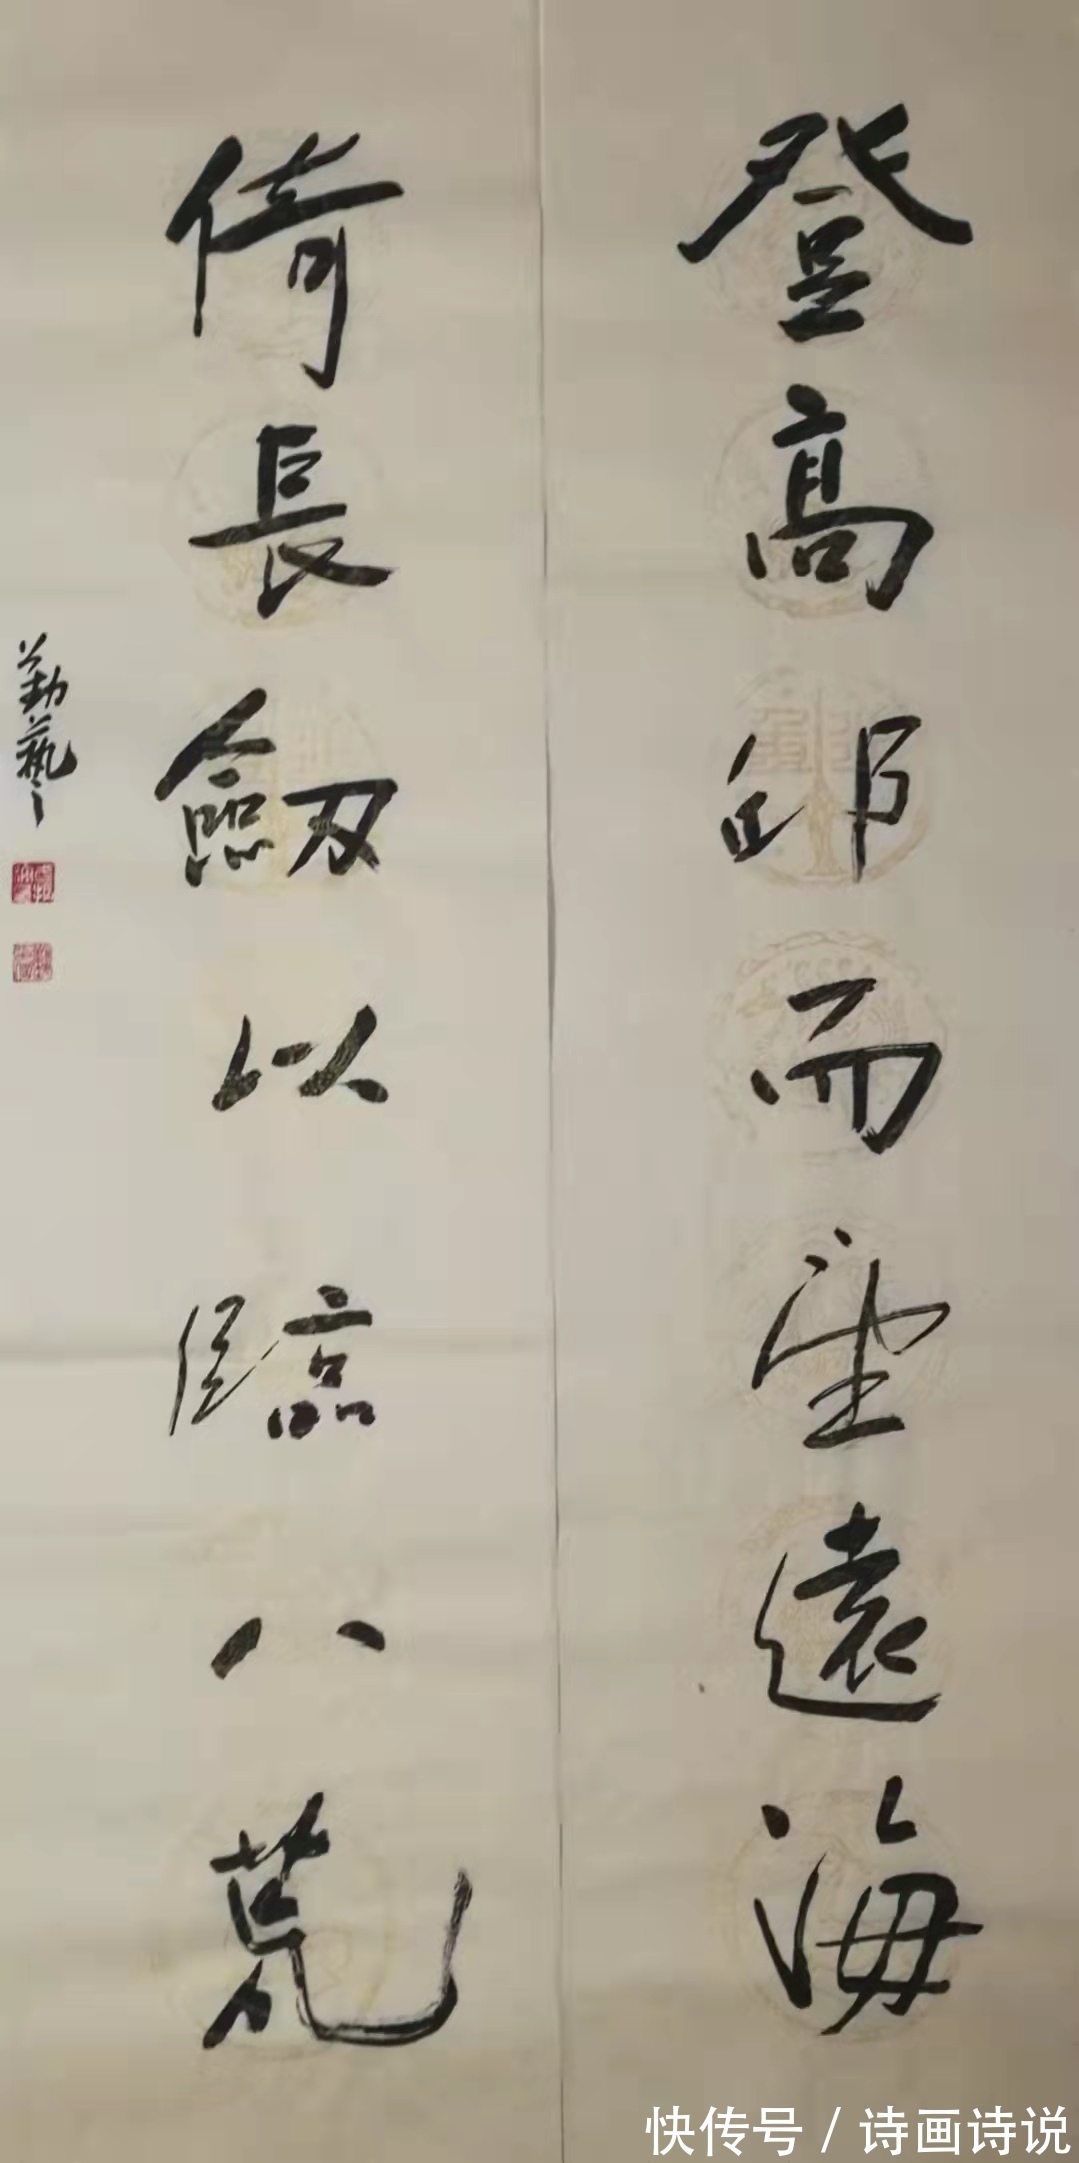 登高邱而望遠海
倚長劔以臨八荒
勤藝
快传号 / 诗画诗说